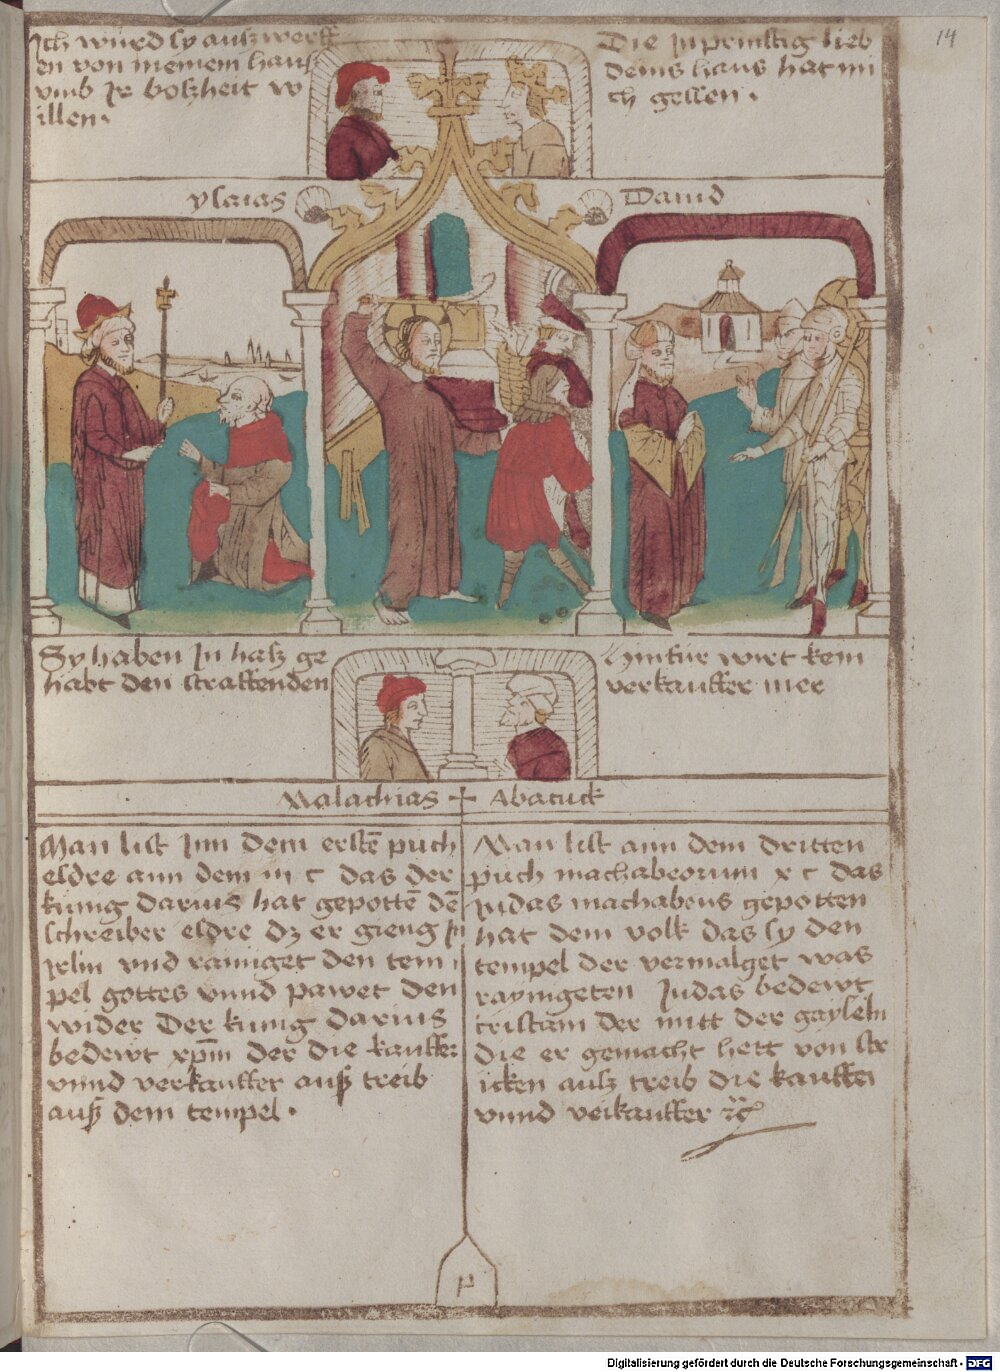 14
Ich würd sy auszwerff
en von meinem haus
vmb Ir boszheit w
illen.
Die Inprinstig lieb
deins haus hat mi
ch gessen.
ysaias
Dauid
Sy haben In hasz ge
habt den straffenden
Hinfür wirt kein
verkauffer mer
Malachias + Abacuck
Man list Inn dem erstē puch
esdre ann dem iii c das der
kunig darius hat gepottē dē
schreiber esdre dz er gieng in
irlm vnd rainiget den tem
pel gottes vnnd pawet den
wider Der kunig darius
bedewt xpm der die kauffer
vnnd verkauffer ausz treib
ausz dem tempel.
Man list ann dem dritten
puch machabeorum x c das
Judas machabeus gepotten
hat dem volk das sy den
tempel der vermalget was
raynigeten Judas bedewt
cristum der mitt der gayseln
die er gemacht hett von str
icken ausz treib die kauffer
vnnd verkauffer ꝛc
p
Digitalisierung gefördert durch die Deutsche Forschungsgemeinschaft - DFG